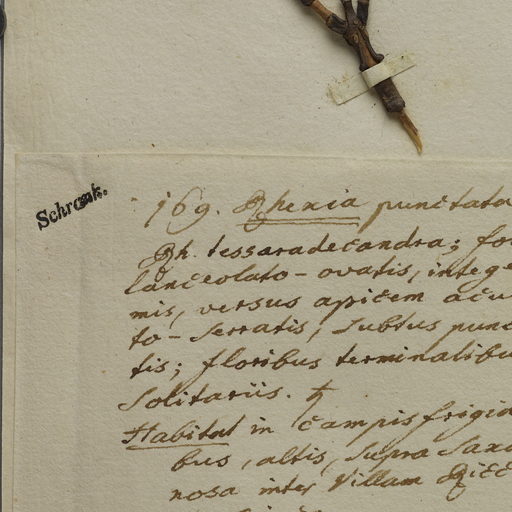 Schrank.
169. Rhexia punctata
Rh. tessaradecandra; fo
lanceolato-ovatis, intege
mis, versus apicem acu
to-serratis, subtus punc
tis; floribus terminalibu
Solitariis. ♄
Habitat in campis frigid
bus, altis, supra Saxa
nosa inter Villam Ricc